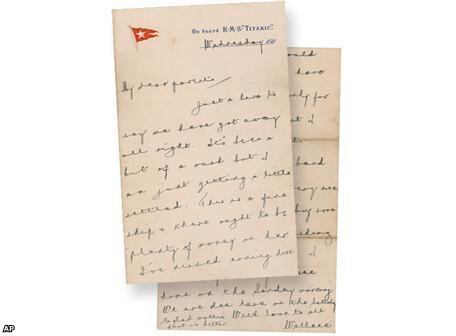 On board R·M·S "TITANIC."
Wednesday 191
My dear parents
Just a line to
say we have got away
all right. It's been a
bit of a rush but I
am just getting a little
settled. This is a fine
ship & there ought to be
plenty of money on her
I've missed coming home
have
only for
t I
band
very nice
buy some
home on the Sunday morning
We are due here on the Saturday
With love to all
that is better.
Wallace
AP